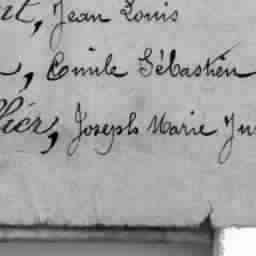 Jean Louis
, Emile Sébastien
, Joseph Marie